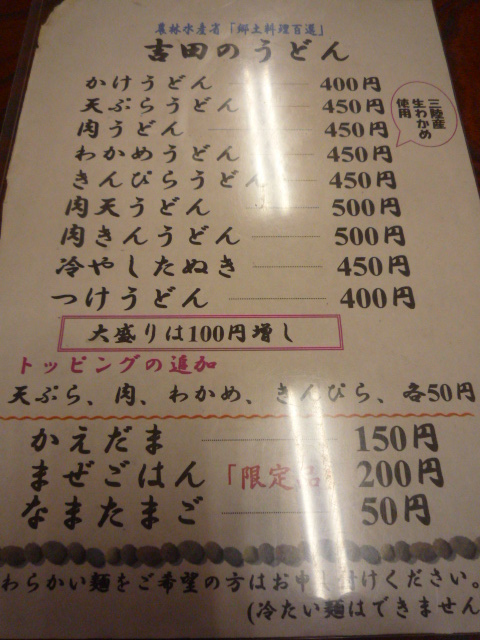 農林水産省「郷土料理百選」
吉田のうどん
かけうどん 400円
天ぷらうどん 450円
肉うどん 450円
わかめうどん 450円
三陸産
生わかめ
使用
きんぴらうどん 450円
肉天うどん 500円
肉きんうどん 500円
冷やしたぬき 450円
つけうどん 400円
大盛りは100円増し
トッピングの追加
天ぷら、肉、わかめ、きんぴら、各50円
かえだま 150円
まぜごはん「限定品 200円
なまたまご 50円
わらかい麺をご希望の方はお申し付けください。
(冷たい麺はできません